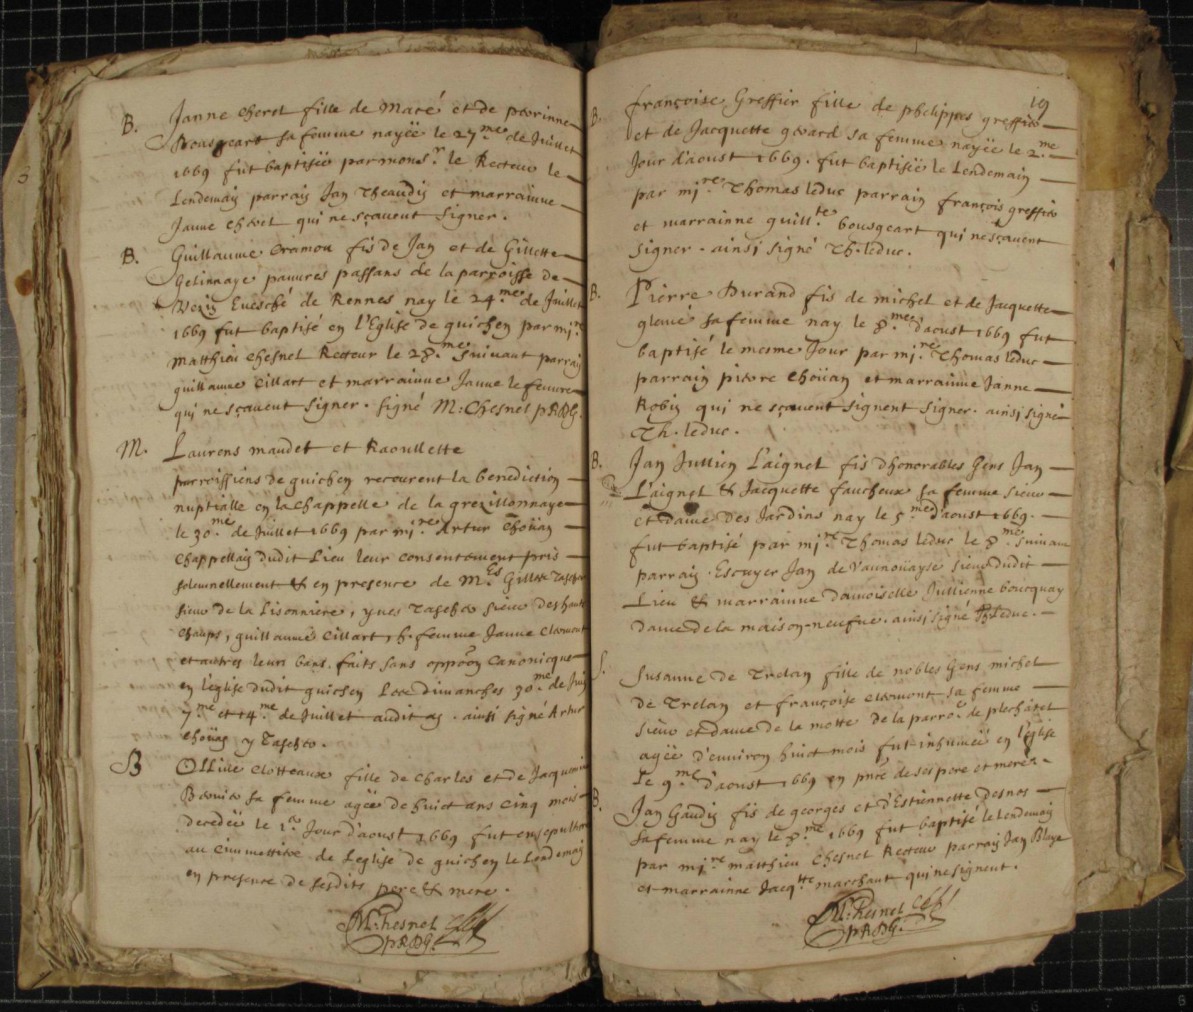 B. Janne Chevel fille de Macé et de perrinne
Bousgeart sa femme nayëe le 27.me de Juillet
1669 fut baptisëe par mons.r le Recteur le
Lendemain parrain Jan Theaudin et marrainne
Janne Chevel qui ne sçavent signer.
B. Guillaume Oramou fis de Jan et de Gillette
Gelinnaye pauvres passans de la parroisse de
Vezin Evesché de Rennes nay le 24.me de Juillet
1669 fut baptisé en l'Eglise de guichen par mi.re
Matthieu Chesnel Recteur le 28.me suivant parrain
guillaume Cillart et marrainne Janne le feuvre
qui ne sçavent signer. signé M: Chesnel pRDG.
M. Laurens maudet et Raoullette
parroissiens de guichen receurent la benediction
nuptialle en la Chappelle de la grezillonnaye
le 30.me de Juillet 1669 par mi.re Artur Choüan
Chappellain dudit Lieu leur consentement pris
solemnellement & en presence de M.es Gilles Taschet
sieur de la Lisonniere, yves Taschet sieur des hauts
Champs, guillaume Cillart, h. femme Janne Clement
et autres leurs bans faits sans oppõon canonicque
en l'eglise dudit guichen Les dimanches 30.me de Juin
7.me et 14.me de Juillet audit an. ainsi signé Artur
Choüan y Taschet.
S Ollive Clotteaux fille de Charles et de Jacquemine
sa femme agëe de huict ans cinq mois
decedëe le 1.er Jour d'aoust 1669 fut ensepulturëe
au Cimmettiere de l'eglise de guichen le Lendemain
en presence de sesdits pere & mere.
M: Chesnel
pRDG.
19
B. françoise Greffier fille de phelippes greffier
et de Jacquette gerard sa femme nayëe le 2.me
Jour d'aoust 1669. fut baptisëe le Lendemain
par mi.re Thomas leduc parrain françois greffier
et marrainne guill.te bousgeart qui ne sçavent
signer. ainsi signé Th. leduc.
B. Pierre Durand fis de michel et de Jacquette
sa femme nay le 8.me d'aoust 1669 fut
baptisé le mesme Jour par mi.re Thomas leduc
parrain pierre Choüan et marrainne Janne
Robin qui ne sçavent signent signer. ainsi signé
Th. leduc.
B. Jan Jullien Laignel fis d'honorables gens Jan
Laignel & Jacquette faucheux sa femme sieur
et dame des Jardins nay le 5.me d'aoust 1669.
fut baptisé par mi.re Thomas leduc le 8.me suivant
parrain Escuyer Jan de Vaunouayse sieur dudit
Lieu & marrainne damoiselle Jullienne boucquay
dame de la maison-neufve. ainsi signé Th leduc.
S. Susanne de Trelan fille de nobles gens michel
de Trelan et françoise Clement sa femme
sieur et dame de la motte de la parro.e de plechâtel
agëe d'environ huict mois fut inhumëe en l'église
le 9.me d'aoust 1669 en pñce de ses pere et mere.
B. Jan Gaudin fis de georges et d'Estiennette Desnos
sa femme nay le 8.me 1669 fut baptisé le Lendemain
par mi.re matthieu Chesnel Recteur parrain Jan Blaye
et marrainne Jacq.tte marchant qui ne signent.
M: Chesnel
pRDG.